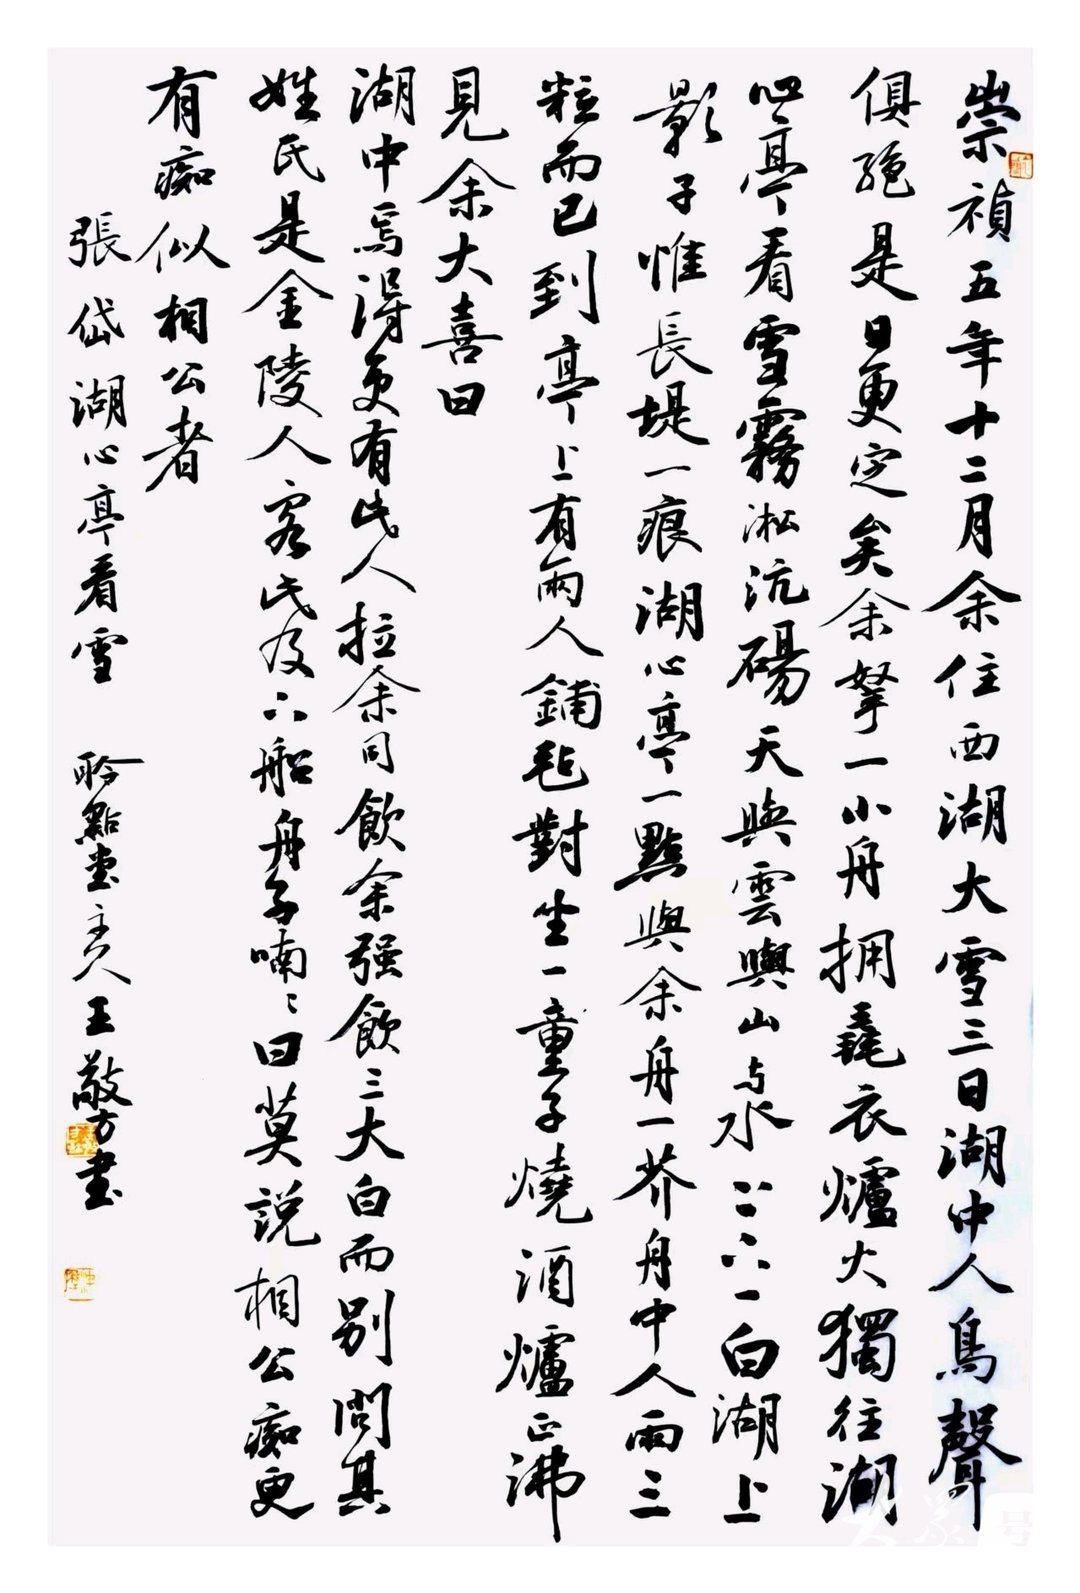 崇禎五年十二月余住西湖大雪三日湖中人鳥聲
俱絕是日更定矣余拏一小舟拥毳衣爐火獨往湖
心亭看雪霧淞沆碭天與雲與山与水上下一白湖上
影子惟長堤一痕湖心亭一點與余舟一芥舟中人兩三
粒而已到亭上有兩人鋪毡對坐一童子燒酒爐正沸
見余大喜曰
湖中焉得更有此人拉余同飲余强飲三大白而别問其
姓氏是金陵人客此及下船舟子喃〻曰莫説相公痴更
有痴似相公者
張岱湖心亭看雪 聆點堂主人王敬方書